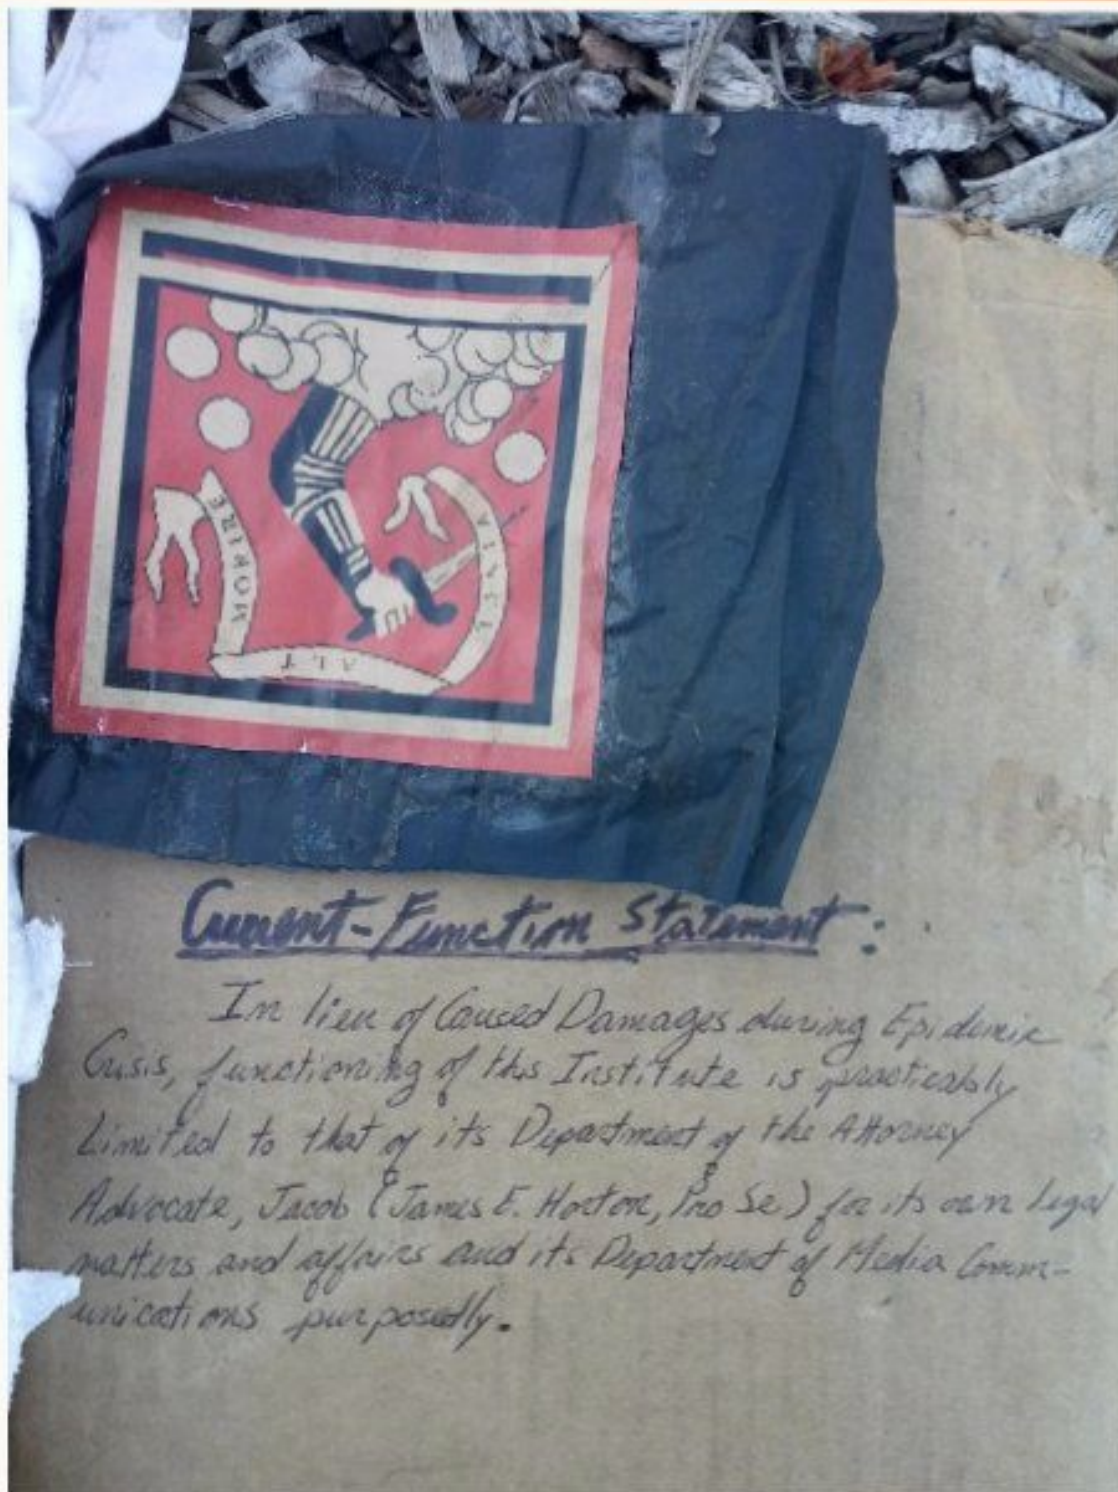 VINCE
AUT
MORIRE
Current-Function Statement:
In lieu of Caused Damages during Epidemic
Crisis, functioning of this Institute is practicably
Limited to that of its Department of the Attorney
Advocate, Jacob (James E. Horton, Pro Se) for its own Legal
matters and affairs and its Department of Media Comm-
unications purposedly.